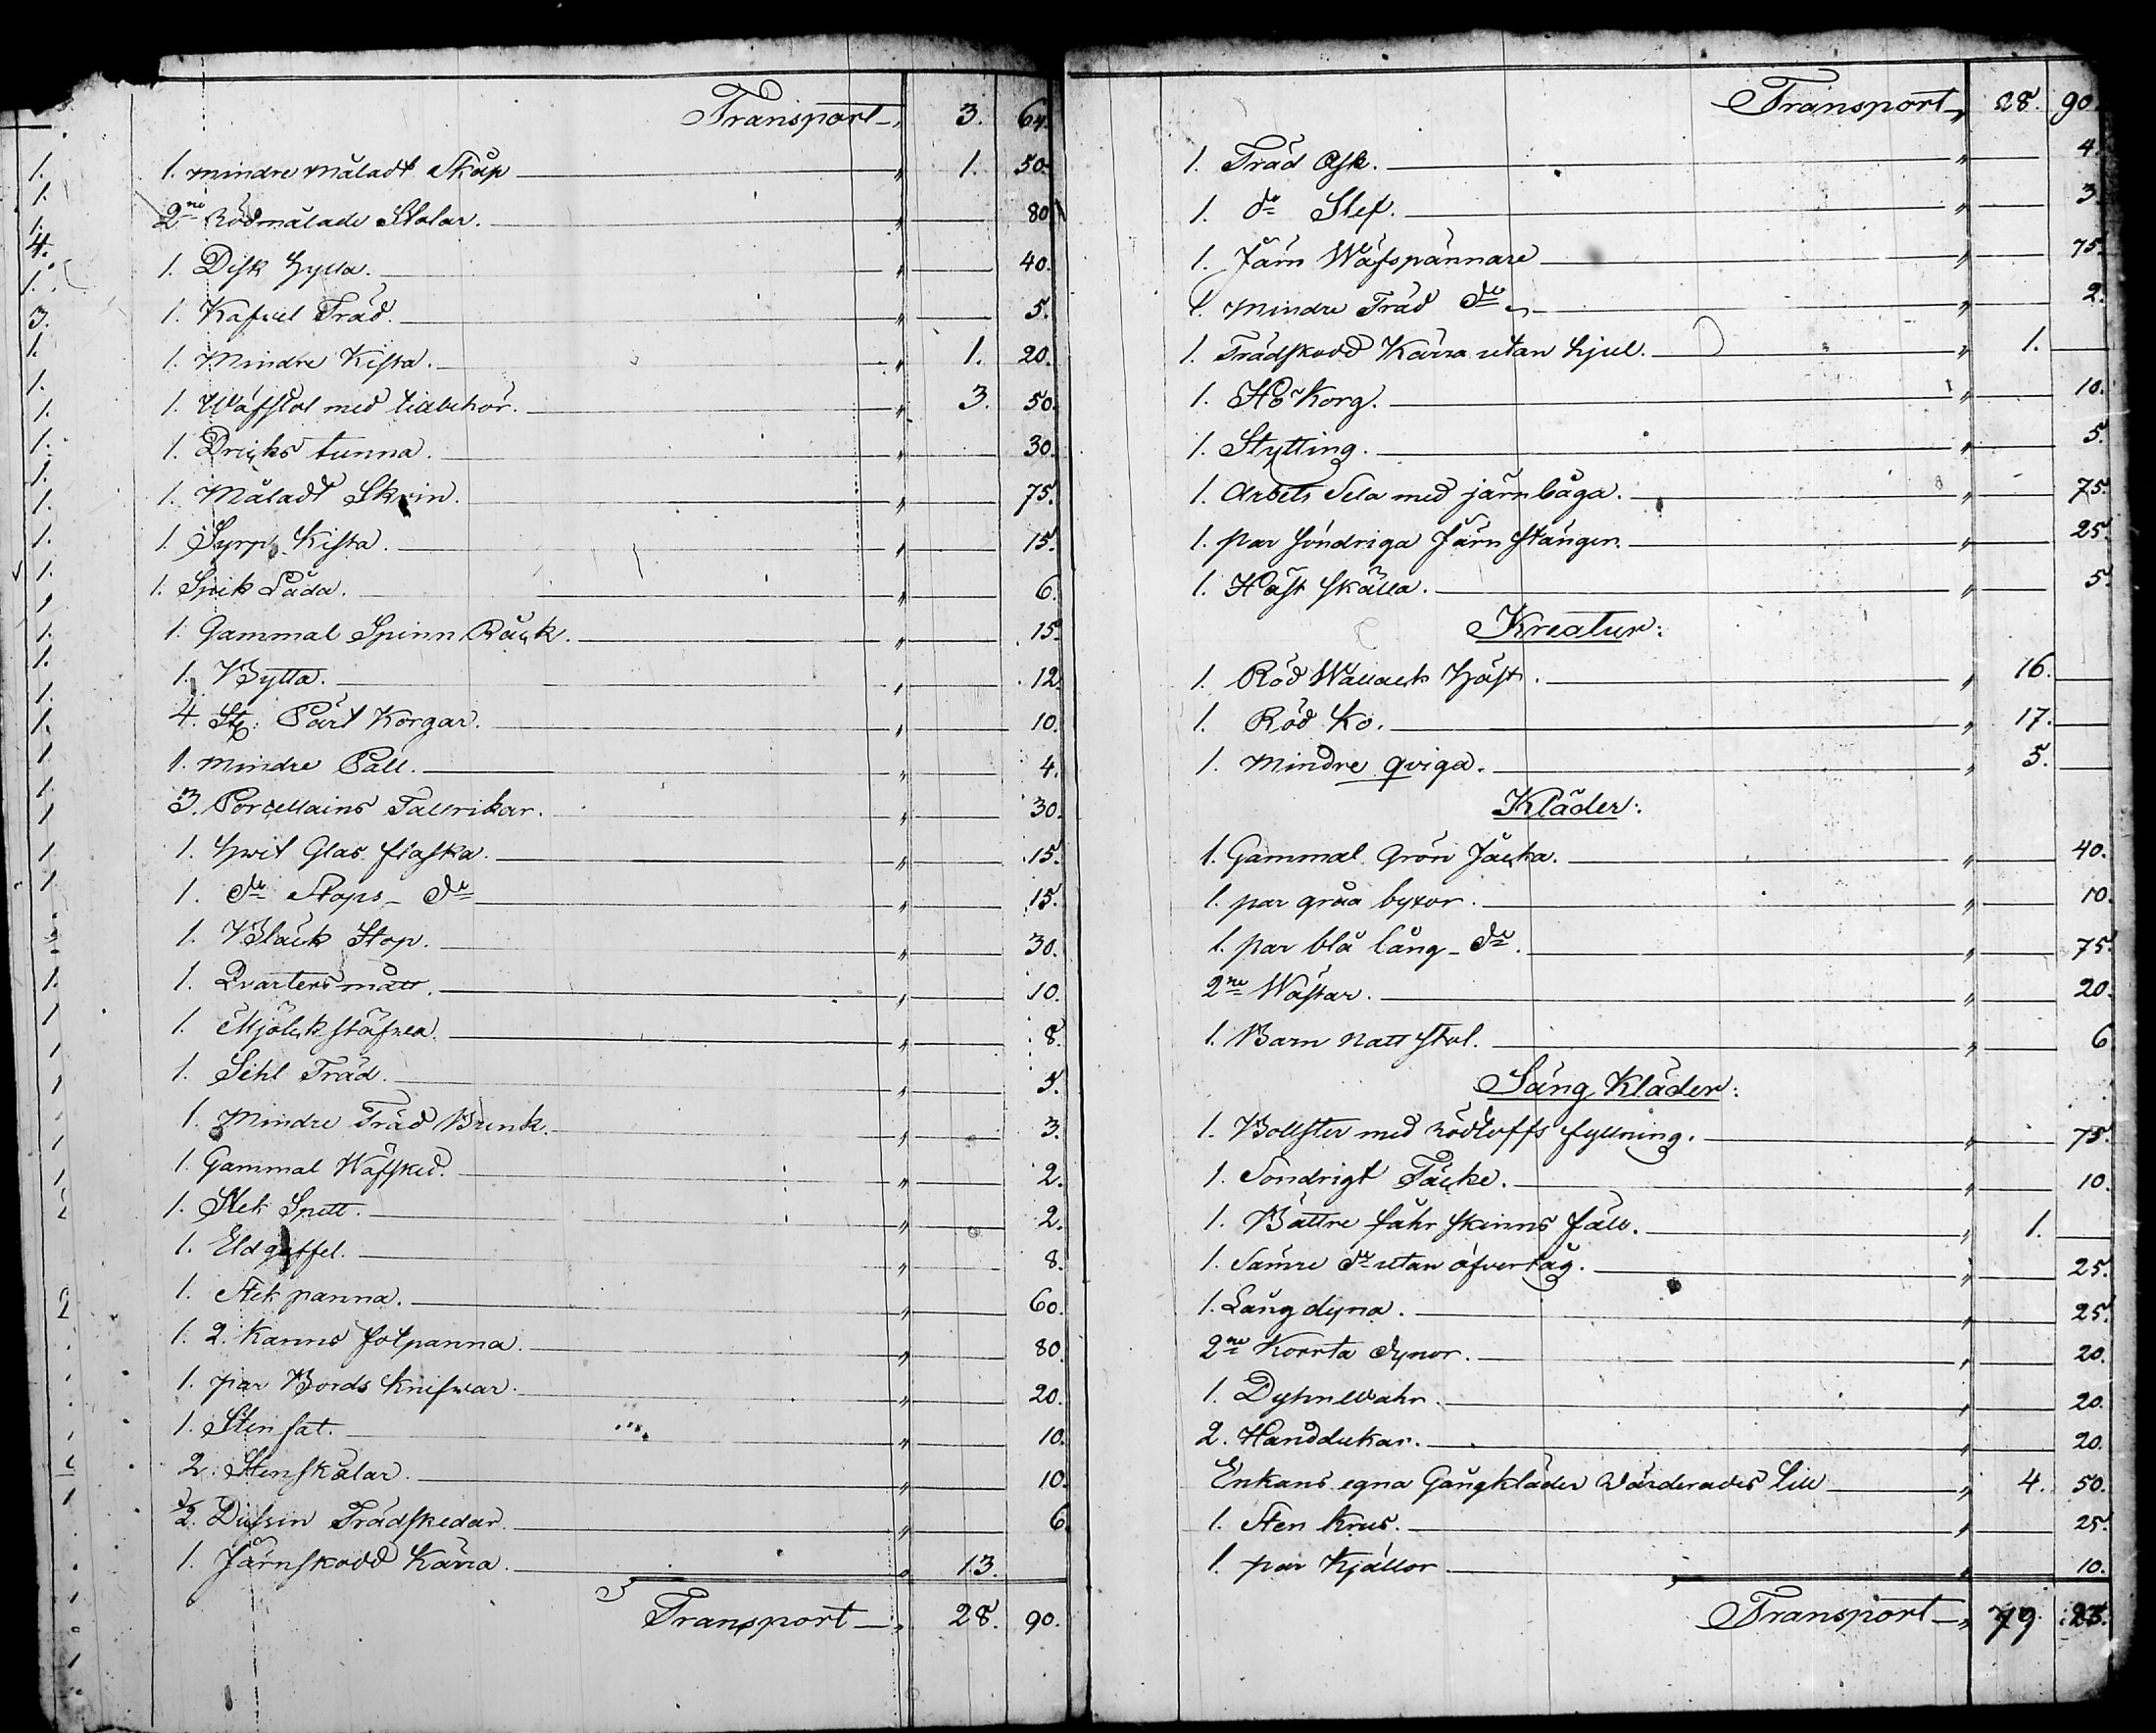 Transport 3. 64.
1. mindre måladt Skåp 1. 50.
2ne Rödmålade Stolar. 80
1. Disk Hylla. 40.
1. Kafvel Träd. 5.
1. Mindre Kista. 1. 20.
1. Wäfstol med tillbehör. 3. 50.
1. Dricks tunna. 30.
1. Måladt Skrin. 75.
1. Syrps Kista. 15.
1. Spik Låda. 6.
1. Gammal Spinn Råck. 15.
1. Bytta. 12.
4. St: Pärt Korgar. 10.
1. mindre Pall. 4.
3. Porcellains Tallrikar. 30.
1. Hvit Glas flaska. 15.
1. do Stops- do 15.
1. Bläck Stop. 30.
1. Qvarters mått. 10.
1. Mjölck stäfwa. 8.
1. Sihl Träd. 5.
1. Mindre Träd Bunk. 3.
1. Gammal Wäfsked. 2.
1. Stek Spett. 2.
1. Eld gaffel. 8.
1. Stek panna. 60.
1. 2. Kanns fotpanna. 80.
1. par Bords knifwar. 20.
1. Sten fat. 10.
2. Stenskålar. 10.
1/2 Dussin Trädskedar. 6.
1. Järnskodd Kärra. 13.
Transport 28. 90.
Transport 28. 90.
1. Träd Ask. 4.
1. do Slef. 3.
1. Järn Wäfspännare 75.
1. Mindre Träd do 2.
1. Trädskodd Kärra utan hjul. 1.
1. Hö Korg. 10.
1. Stytting. 5.
1. Arbets Sela med järnbåga. 75.
1. par söndriga Järn Stänger. 25.
1. Häst skälla. 5.
Kreatur:
1. Röd Wallack Häst. 16.
1. Röd Ko. 17.
1. Mindre qviga. 5.
Kläder:
1. Gammal Grön Jacka. 40.
1. par gråa byxor. 10.
1. par blå lång- do. 75.
2ne Wästar. 20.
1. Barn natt stol. 6
Säng Kläder:
1. Bollster med Rödloffs fyllning. 75.
1. Söndrigt Täcke. 10.
1. Bättre fåhr skinns fäll. 1.
1. Sämre do utan öfvertåg. 25.
1. Lång dyna. 25.
2ne Korrta dynor. 20.
1. Dyhnewahr. 20.
2. Handdukar. 20.
Enkans egna Gångkläder Värderades till 4. 50.
1. Sten krus. 25.
1. par Kjällor 10.
Transport 79